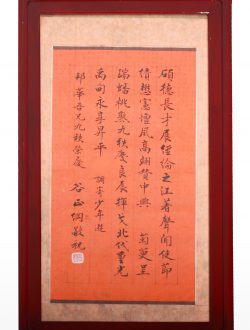 碩德長才展經綸之江著聲聞使節
懋憲壇風高翊贊中興 菊萸呈
瑞蟠桃熟九秩慶良辰揮戈北伐重光
禹甸永享昇平 調寄少年遊
邦華吾兄九秩榮慶
谷正綱敬祝